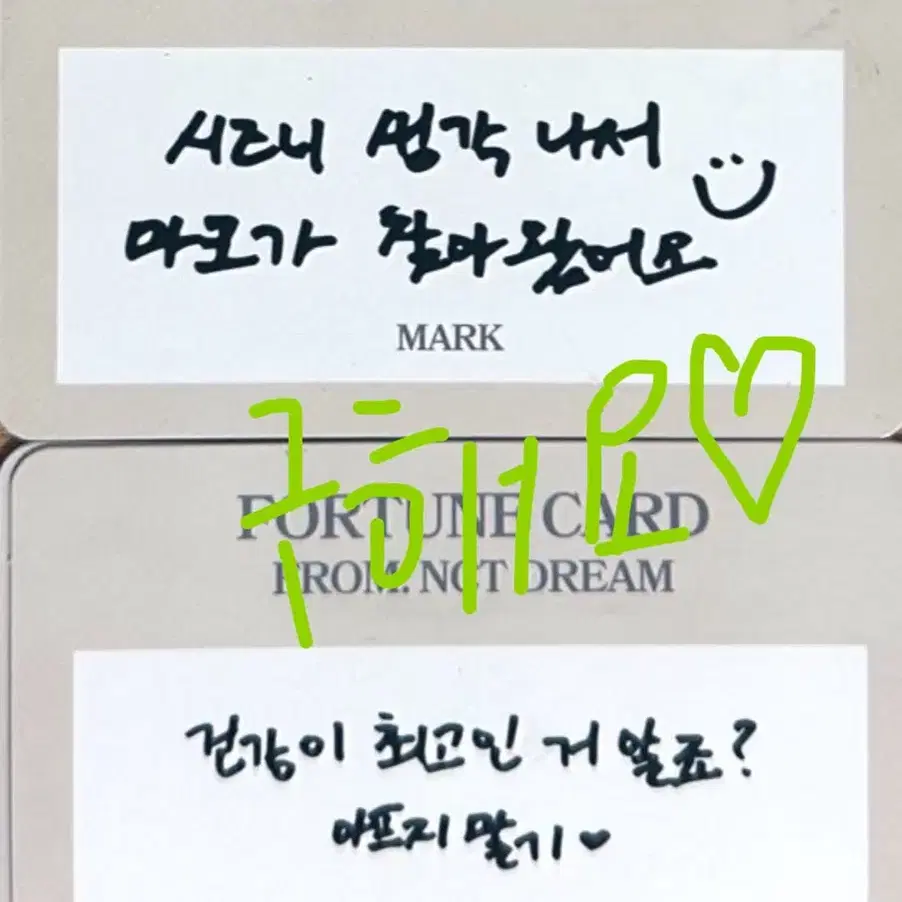 시즈니 생각 나서
마크가 찾아왔어요
MARK
구해요♡
FORTUNE CARD
FROM. NCT DREAM
건강이 최고인 거 알죠?
아프지 말기♥